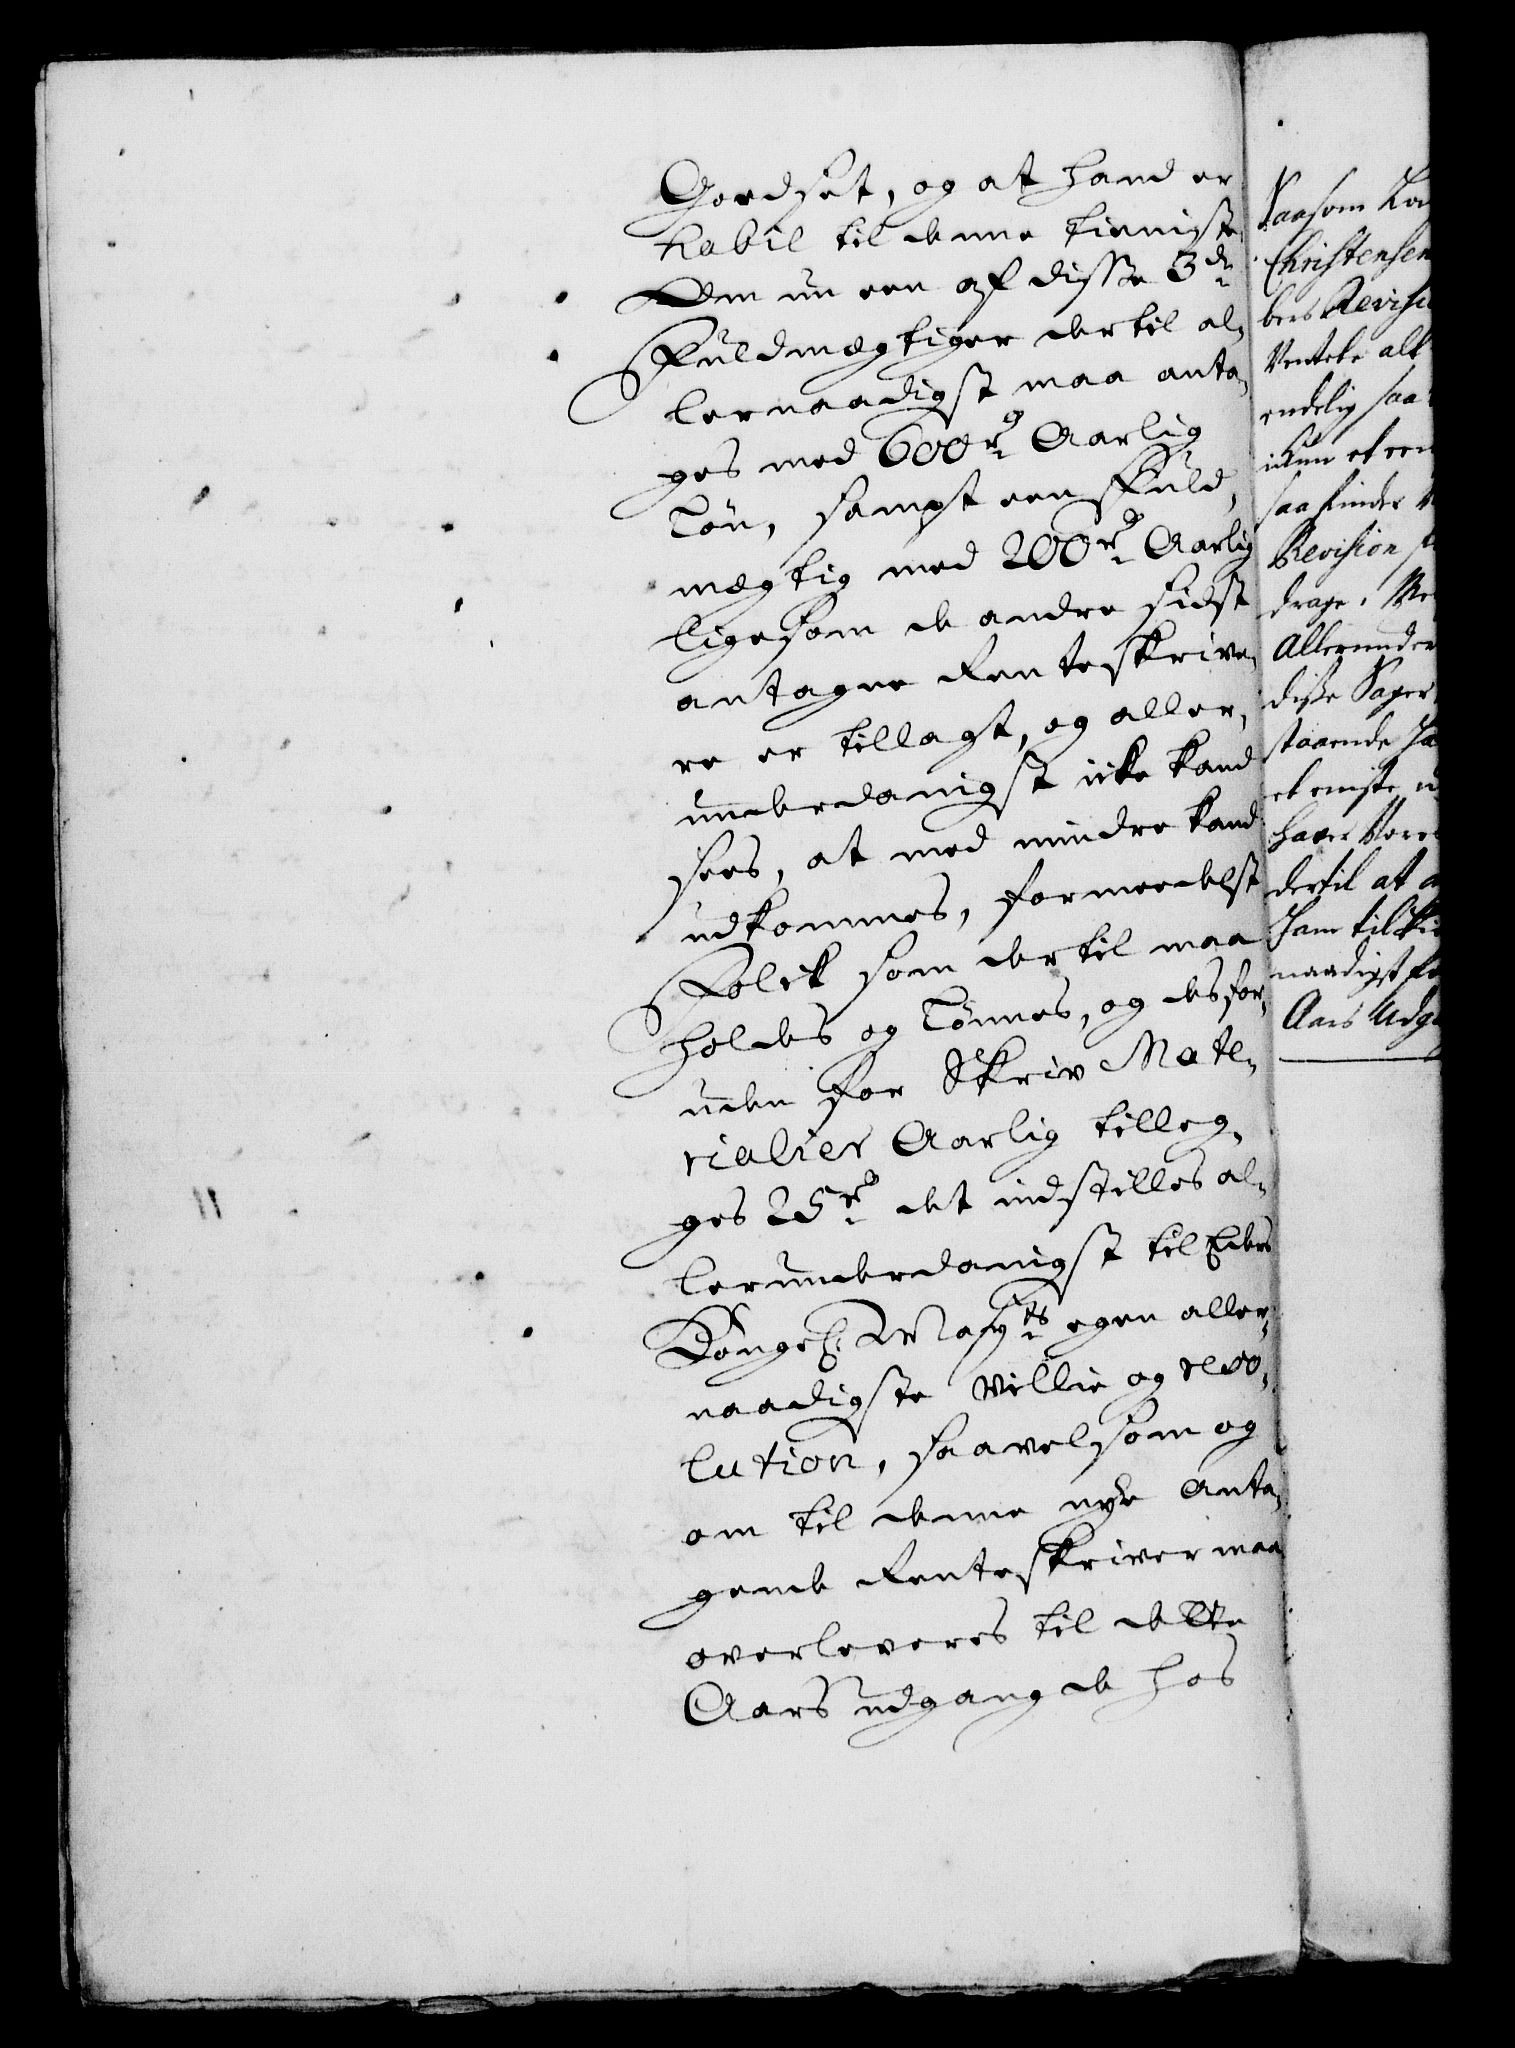 Goedset, og at hand er
habil til denne tieniste
Om nu een af disse 3de
Fuldmægtiger dertil al-
lernaadigst maa anta-
ges med 600 rd Aarlig
Løn, sampt een Fuld-
mægtig med 200 rd Aarlig
ligesom de andre sidst
antagne Renteskrive-
re er tillagt, og aller-
underdanigst icke kand
sees, at med mindre kand
udkommes, formedelst
Folck som dertil maa
holdes og Lønnes, og desfor-
uden for Skriv Mate-
rialier Aarlig tilleg-
ges 25 rd det indstilles al-
lerunderdanigst til Eders
Kongel. Mayts egen aller-
naadigste Villie og reso-
lution, saavelsom og
om til denne nye Anta-
gende Renteskriver maa
overleveres til dette
Aars udgang de hos
Saasom
Christensen
Revisi
endelig saa
saa finder
Revision
drage.
Allerunder
disse Sager
staaende
haver
dertil at
naadigst
Aars Udg